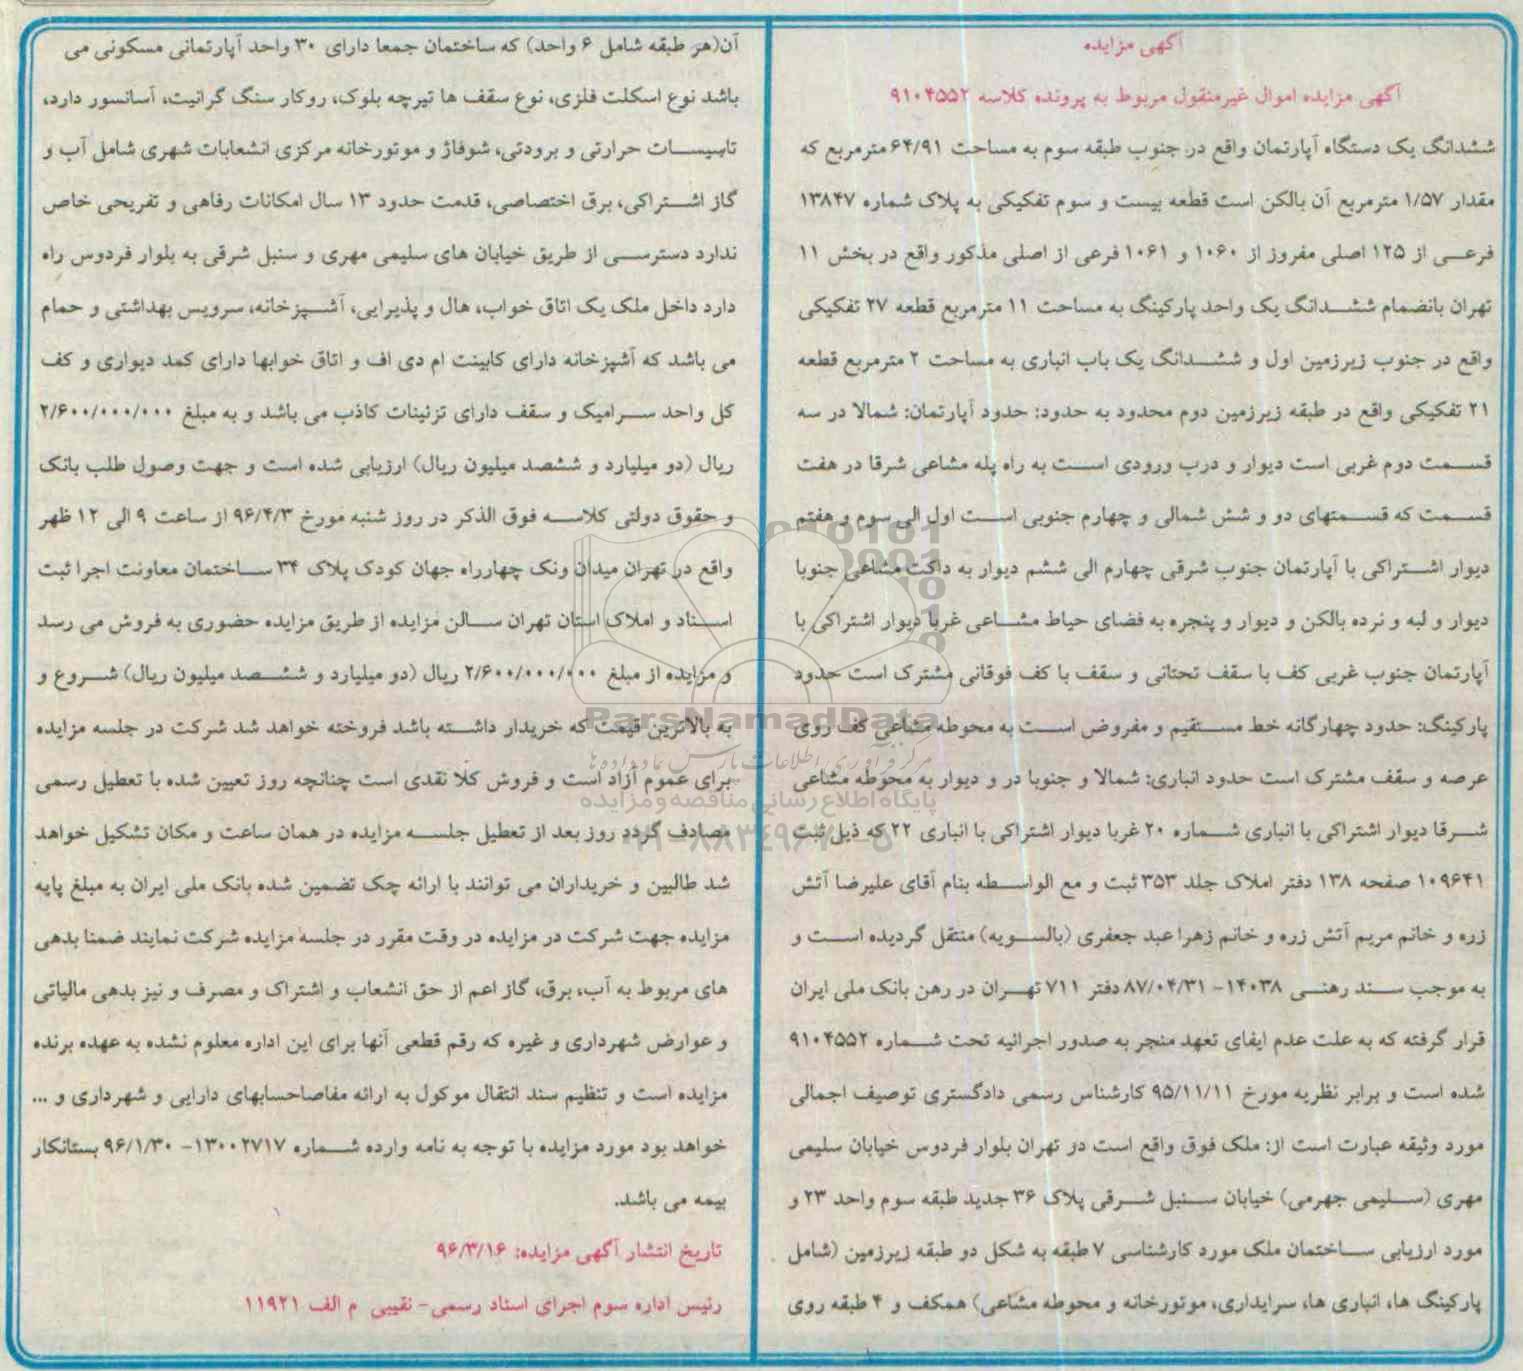 آگهی مزایده
آگهی مزایده اموال غیرمنقول مربوط به پرونده کلاسه ۹۱۰۴۵۵۲
ششدانگ یک دستگاه آپارتمان واقع در جنوب طبقه سوم به مساحت ۶۴/۹۱ مترمربع که
مقدار ۱/۵۷ مترمربع آن بالکن است قطعه بیست و سوم تفکیکی به پلاک شماره ۱۳۸۴۷
فرعی از ۱۲۵ اصلی مفروز از ۱۰۶۰ و ۱۰۶۱ فرعی از اصلی مذکور واقع در بخش ۱۱
تهران بانضمام ششدانگ یک واحد پارکینگ به مساحت ۱۱ مترمربع قطعه ۲۷ تفکیکی
واقع در جنوب زیرزمین اول و ششدانگ یک باب انباری به مساحت ۲ مترمربع قطعه
۲۱ تفکیکی واقع در طبقه زیرزمین دوم محدود به حدود: حدود آپارتمان: شمالا در سه
قسمت دوم غربی است دیوار و درب ورودی است به راه پله مشاعی شرقا در هفت
قسمت که قسمتهای دو و شش شمالی و چهارم جنوبی است اول الی سوم و هفتم
دیوار اشتراکی با آپارتمان جنوب شرقی چهارم الی ششم دیوار به داکت مشاعی جنوبا
دیوار و لبه و نرده بالکن و دیوار و پنجره به فضای حیاط مشاعی غربا دیوار اشتراکی با
آپارتمان جنوب غربی کف با سقف تحتانی و سقف با کف فوقانی مشترک است حدود
پارکینگ: حدود چهارگانه خط مستقیم و مفروض است به محوطه مشاعی کف روی
عرصه و سقف مشترک است حدود انباری: شمالا و جنوبا در و دیوار به محوطه مشاعی
شرقا دیوار اشتراکی با انباری شماره ۲۰ غربا دیوار اشتراکی با انباری ۲۲ که ذیل ثبت
۱۰۹۶۴۱ صفحه ۱۳۸ دفتر املاک جلد ۳۵۳ ثبت و مع الواسطه بنام آقای علیرضا آتش
زره و خانم مریم آتش زره و خانم زهرا عبد جعفری (بالسویه) منتقل گردیده است و
به موجب سند رهنی ۱۴۰۳۸- ۸۷/۰۴/۳۱ دفتر ۷۱۱ تهران در رهن بانک ملی ایران
قرار گرفته که به علت عدم ایفای تعهد منجر به صدور اجرائیه تحت شماره ۹۱۰۴۵۵۲
شده است و برابر نظریه مورخ ۹۵/۱۱/۱۱ کارشناس رسمی دادگستری توصیف اجمالی
مورد وثیقه عبارت است از: ملک فوق واقع است در تهران بلوار فردوس خیابان سلیمی
مهری (سلیمی جهرمی) خیابان سنبل شرقی پلاک ۳۶ جدید طبقه سوم واحد ۲۳ و
مورد ارزیابی ساختمان ملک مورد کارشناسی ۷ طبقه به شکل دو طبقه زیرزمین (شامل
پارکینگ ها، انباری ها، سرایداری، موتورخانه و محوطه مشاعی) همکف و ۴ طبقه روی
آن(هر طبقه شامل ۶ واحد) که ساختمان جمعا دارای ۳۰ واحد آپارتمانی مسکونی می
باشد نوع اسکلت فلزی، نوع سقف ها تیرچه بلوک، روکار سنگ گرانیت، آسانسور دارد،
تاسیسات حرارتی و برودتی، شوفاژ و موتورخانه مرکزی انشعابات شهری شامل آب و
گاز اشتراکی، برق اختصاصی، قدمت حدود ۱۳ سال امکانات رفاهی و تفریحی خاص
ندارد دسترسی از طریق خیابان های سلیمی مهری و سنبل شرقی به بلوار فردوس راه
دارد داخل ملک یک اتاق خواب، هال و پذیرایی، آشپزخانه، سرویس بهداشتی و حمام
می باشد که آشپزخانه دارای کابینت ام دی اف و اتاق خوابها دارای کمد دیواری و کف
کل واحد سرامیک و سقف دارای تزئینات کاذب می باشد و به مبلغ ۲/۶۰۰/۰۰۰/۰۰۰
ریال (دو میلیارد و ششصد میلیون ریال) ارزیابی شده است و جهت وصول طلب بانک
و حقوق دولتی کلاسه فوق الذکر در روز شنبه مورخ ۹۶/۴/۳ از ساعت ۹ الی ۱۲ ظهر
واقع در تهران میدان ونک چهارراه جهان کودک پلاک ۳۴ ساختمان معاونت اجرا ثبت
اسناد و املاک استان تهران سالن مزایده از طریق مزایده حضوری به فروش می رسد
و مزایده از مبلغ ۲/۶۰۰/۰۰۰/۰۰۰ ریال (دو میلیارد و ششصد میلیون ریال) شروع و
به بالاترین قیمت که خریدار داشته باشد فروخته خواهد شد شرکت در جلسه مزایده
برای عموم آزاد است و فروش کلا نقدی است چنانچه روز تعیین شده با تعطیل رسمی
مصادف گردد روز بعد از تعطیل جلسه مزایده در همان ساعت و مکان تشکیل خواهد
شد طالبین و خریداران می توانند با ارائه چک تضمین شده بانک ملی ایران به مبلغ پایه
مزایده جهت شرکت در مزایده در وقت مقرر در جلسه مزایده شرکت نمایند ضمنا بدهی
های مربوط به آب، برق، گاز اعم از حق انشعاب و اشتراک و مصرف و نیز بدهی مالیاتی
و عوارض شهرداری و غیره که رقم قطعی آنها برای این اداره معلوم نشده به عهده برنده
مزایده است و تنظیم سند انتقال موکول به ارائه مفاصاحسابهای دارایی و شهرداری و ...
خواهد بود مورد مزایده با توجه به نامه وارده شماره ۱۳۰۰۲۷۱۷- ۹۶/۱/۳۰ بستانکار
بیمه می باشد.
تاریخ انتشار آگهی مزایده: ۹۶/۳/۱۶
رئیس اداره سوم اجرای اسناد رسمی- نقیبی م الف ۱۱۹۲۱
ParsNamadData
پایگاه اطلاع رسانی مناقصه و مزایده